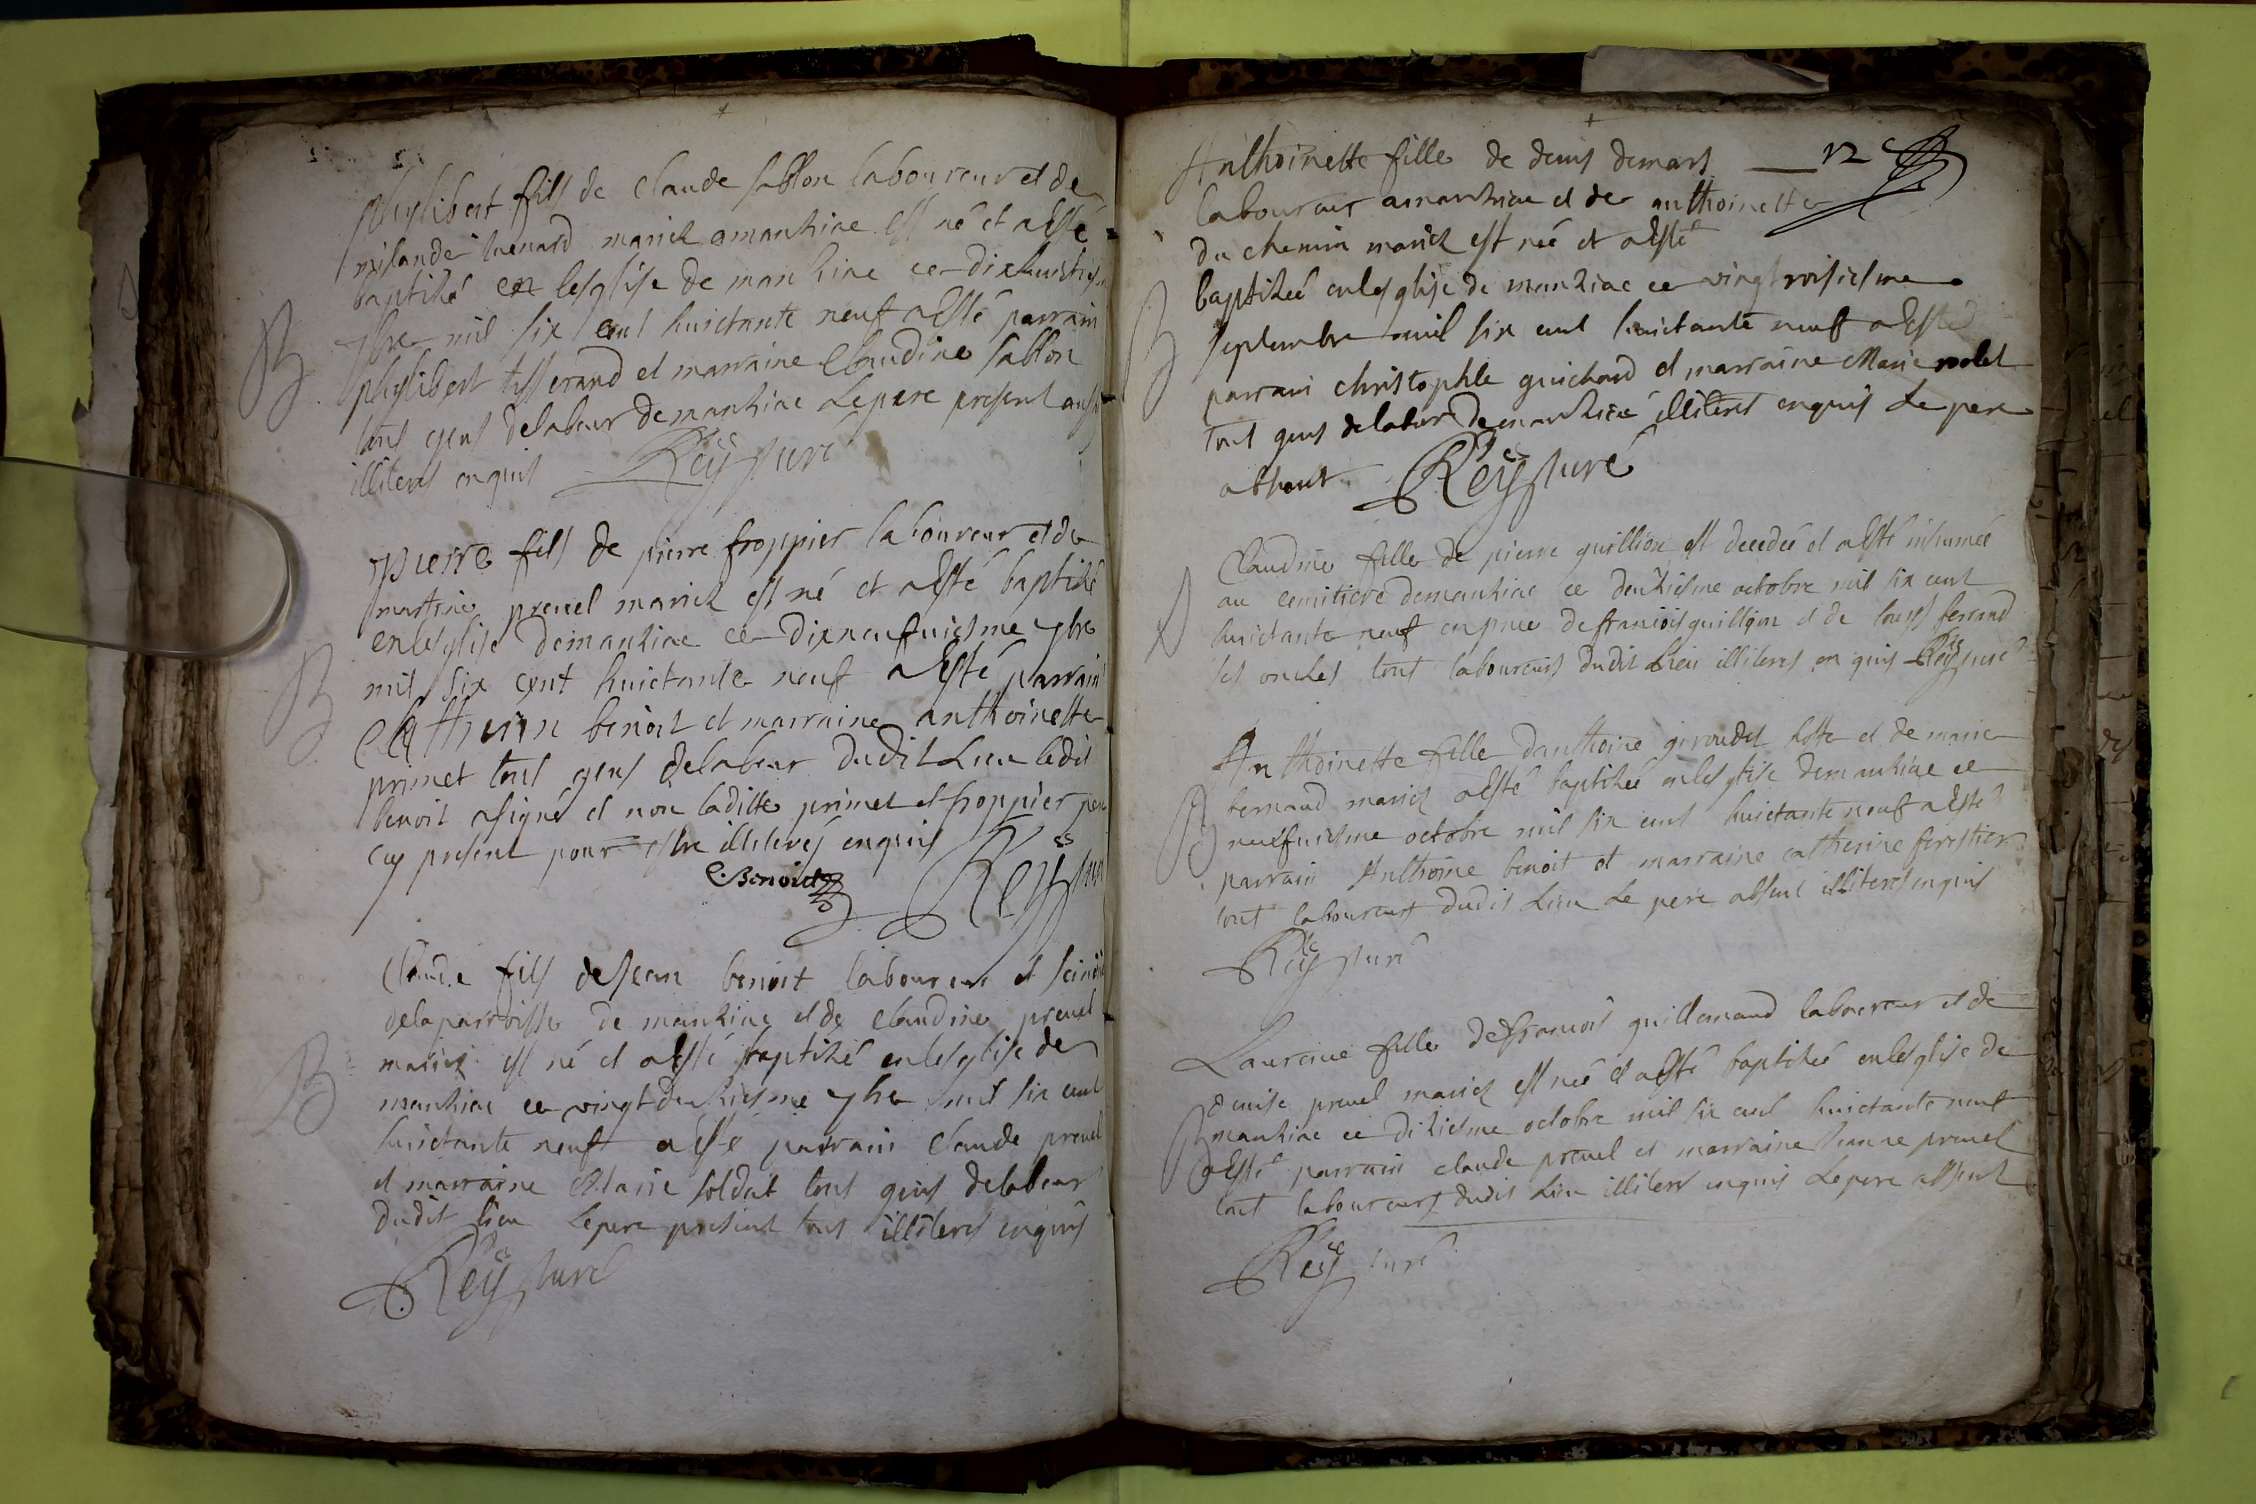 B
phylibert fils de Claude sablon laboureur et de
milande menard mariez a manziac est né et a esté
baptizé en lesglise de manziac ce dixhuictiesme
7bre mil six cent huictante neuf a esté parrain
phylibert tisserand et marraine Claudine sablon
tous gens delabeur de manziac Le pere present aussy
illiteres enquis Reÿ curé
B
pierre fils de pierre froppier laboureur et de
martine prevel mariez est né et a esté baptizé
en lesglise demanziac ce dixneufuiesme 7bre
mil six cent huictante neuf a esté parrain
Catherin benoit et marraine anthoinette
primet tous gens delabeur dudit Lieu ledit
benoit a signé et non laditte primet et froppier pere
cy present pour estre illiteres enquis
C. Benoit Reÿ curé
B
Claude fils de Jean benoit laboureur et
delaparroisse de manziac et de Claudine prevel
mariez est né et a esté baptizé en lesglise de
manziac ce vingtdeuxiesme 7bre mil six cent
huictante neuf a esté parrain Claude prevel
et marraine Marie soldat tous gens delabeur
dudit lieu Le pere present tous illiteres enquis
Reÿ curé
12
B
Anthoinette fille de denis demars
laboureur a manziac et de anthoinette
du chemin mariez est née et a esté
baptizée en lesglise de manziac ce vingtroisiesme
septembre mil six cent huictante neuf a esté
parrain christophle guichard et marraine Marie nolet
tous gens delabeur de manziac illiteres enquis Le pere
absent Reÿ curé
Claudine fille de pierre guillion est decedée et a esté inhumée
au cemitiere demanziac ce deuxiesme octobre mil six cent
huictante neuf en pnce de francois guillion et de louys ferrand
ses oncles tous laboureurs dudit Lieu illiteres enquis Reÿ curé
B
Anthoinette fille danthoine giroudet hoste et de marie
bernaud mariez a esté baptizée en lesglise demanziac ce
neufuiesme octobre mil six cent huictante neuf a esté
parrain Anthoine benoit et marraine catherine ferestier
tout laboureurs dudit Lieu Le pere absent illiteres enquis
Reÿ curé
B
Laurence fille de francois guillemaud laboureur et de
denise prevel mariez est née et a esté baptizée en lesglise de
manziac ce dixiesme octobre mil six cent huictante neuf
a esté parrain claude prevel et marraine Jeanne prevel
tout laboureurs dudit Lieu illiteres enquis Le pere absent
Reÿ curé